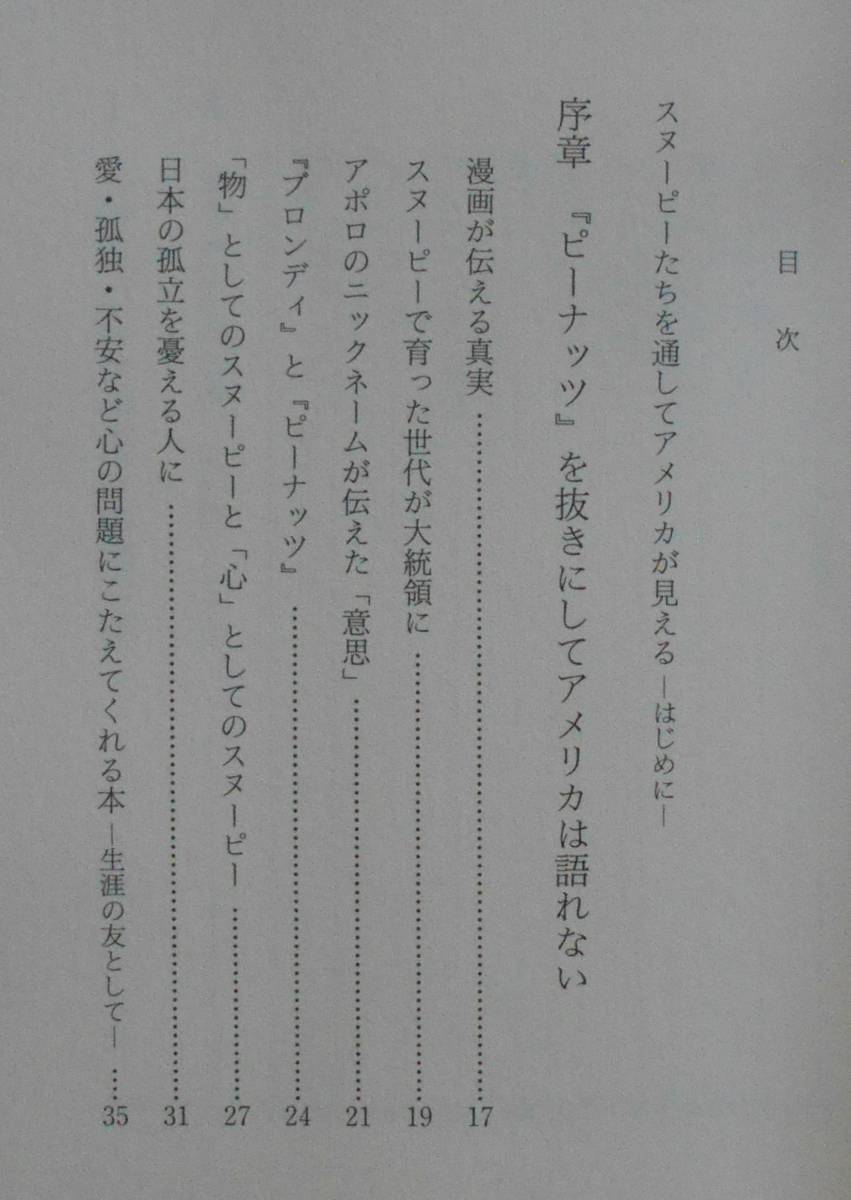 目次
スヌーピーたちを通してアメリカが見える―はじめに―
序章 『ピーナッツ』を抜きにしてアメリカは語れない
漫画が伝える真実……………………………17
スヌーピーで育った世代が大統領に……………………………19
アポロのニックネームが伝えた「意思」……………………………21
『ブロンディ』と『ピーナッツ』……………………………24
「物」としてのスヌーピーと「心」としてのスヌーピー……………27
日本の孤立を憂える人に……………………………31
愛・孤独・不安など心の問題にこたえてくれる本―生涯の友として―……35